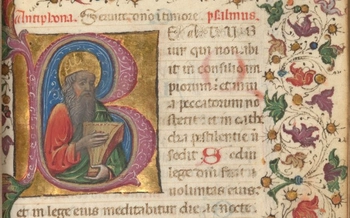 Antiphona. Seruite psalmus.
B
uir qui non abi
it in consilio im
piorum: et in ui
a peccatorum no
stetit: et in cathe
dra pestilentie nō
sedit Sed in
lege dn̄i fuit
uoluntas eius:
et in lege eius meditabitur die ac nocte